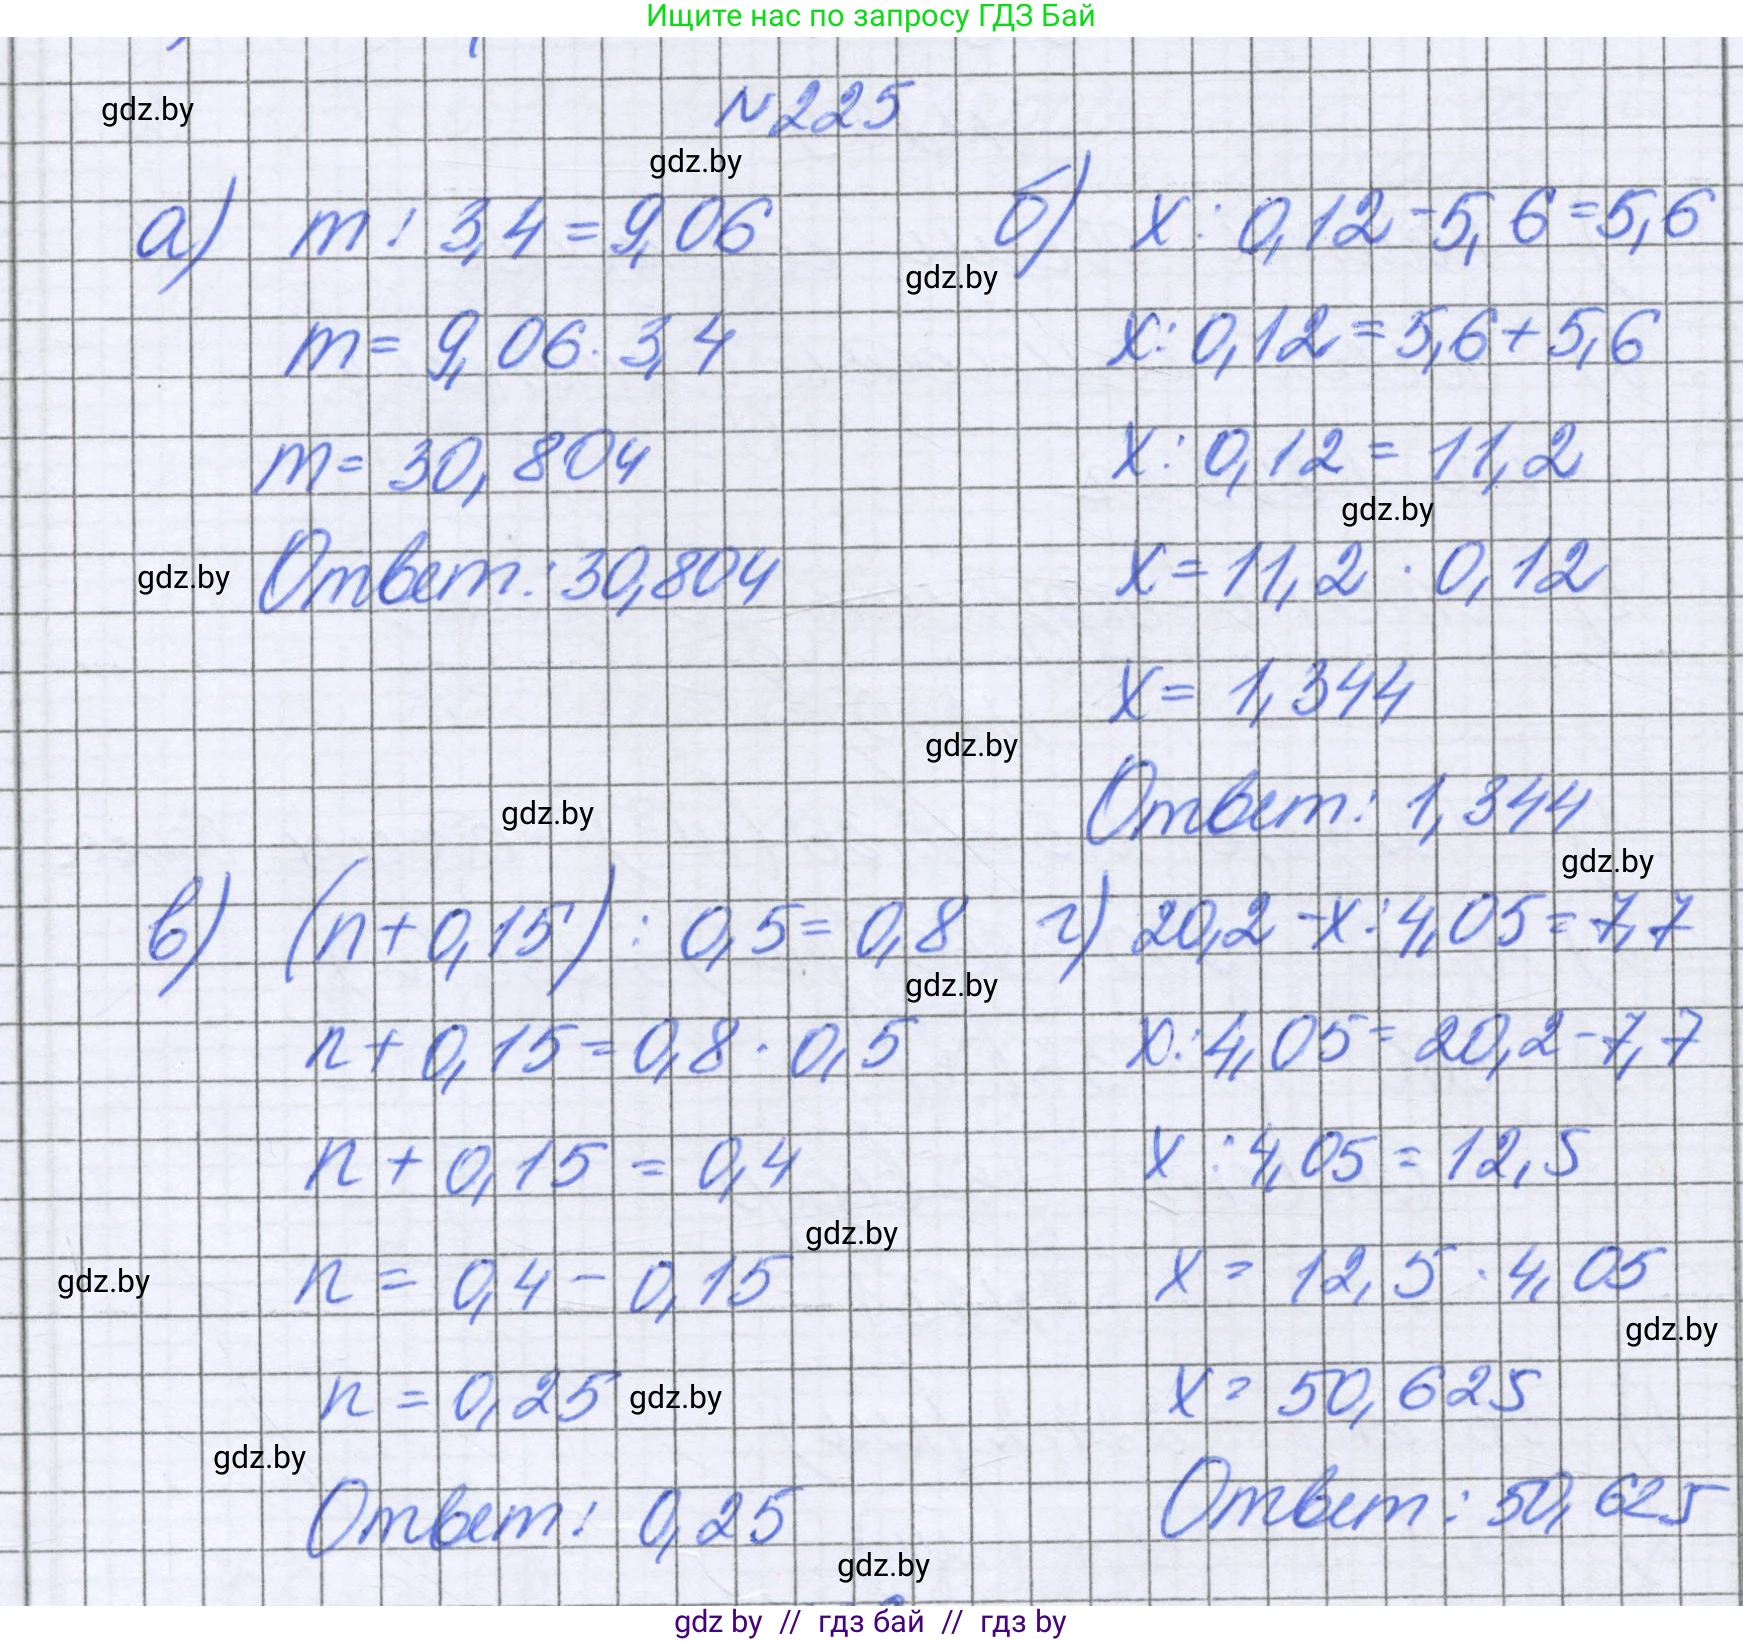 Ищите нас по запросу ГДЗ Бай
№225
gdz.by
gdz.by
а) m : 3,4 = 9,06
m = 9,06 · 3,4
m = 30,804
gdz.by
Ответ: 30,804
б) x : 0,12 - 5,6 = 5,6
gdz.by
x : 0,12 = 5,6 + 5,6
x : 0,12 = 11,2
gdz.by
x = 11,2 · 0,12
x = 1,344
gdz.by
Ответ: 1,344
gdz.by
gdz.by
в) (n + 0,15) : 0,5 = 0,8
gdz.by
n + 0,15 = 0,8 · 0,5
n + 0,15 = 0,4
gdz.by
gdz.by
n = 0,4 - 0,15
n = 0,25
gdz.by
gdz.by
Ответ: 0,25
gdz.by
г) 20,2 - x : 4,05 = 7,7
x : 4,05 = 20,2 - 7,7
x : 4,05 = 12,5
x = 12,5 · 4,05
gdz.by
x = 50,625
Ответ: 50,625
gdz by // гдз бай // гдз by